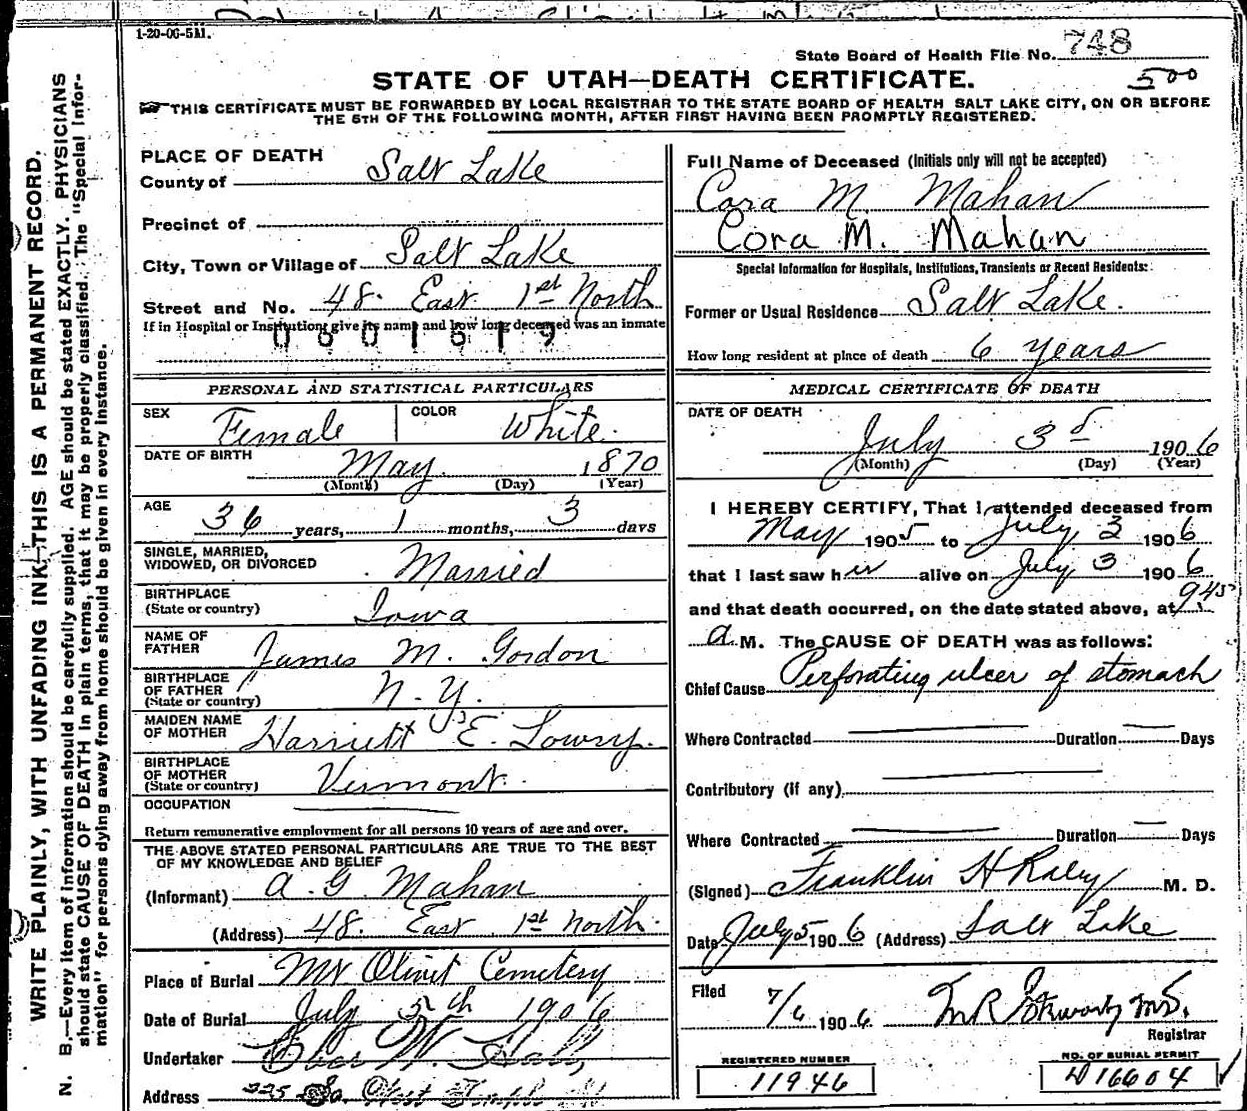 1-20-06-5M.
State Board of Health File No. 748
STATE OF UTAH—DEATH CERTIFICATE. 500
THIS CERTIFICATE MUST BE FORWARDED BY LOCAL REGISTRAR TO THE STATE BOARD OF HEALTH SALT LAKE CITY, ON OR BEFORE
THE 5TH OF THE FOLLOWING MONTH, AFTER FIRST HAVING BEEN PROMPTLY REGISTERED.
WRITE PLAINLY, WITH UNFADING INK—THIS IS A PERMANENT RECORD.
N. B.—Every item of information should be carefully supplied. AGE should be stated EXACTLY. PHYSICIANS
should state CAUSE OF DEATH in plain terms, that it may be properly classified. The "Special Infor-
mation" for persons dying away from home should be given in every instance.
PLACE OF DEATH
County of Salt Lake
Precinct of
City, Town or Village of Salt Lake
Street and No. 48. East 1st North
If in Hospital or Institution, give its name and how long deceased was an inmate
0601519
PERSONAL AND STATISTICAL PARTICULARS
SEX Female COLOR White.
DATE OF BIRTH May 1870
(Month) (Day) (Year)
AGE 36 years, 1 months, 3 days
SINGLE, MARRIED,
WIDOWED, OR DIVORCED Married
BIRTHPLACE
(State or country) Iowa
NAME OF
FATHER James M. Gordon
BIRTHPLACE
OF FATHER
(State or country) N. Y.
MAIDEN NAME
OF MOTHER Harriett E. Lowry.
BIRTHPLACE
OF MOTHER
(State or country) Vermont.
OCCUPATION
Return remunerative employment for all persons 10 years of age and over.
THE ABOVE STATED PERSONAL PARTICULARS ARE TRUE TO THE BEST
OF MY KNOWLEDGE AND BELIEF
(Informant) A. G. Mahan
(Address) 48. East 1st North.
Place of Burial Mt Olivet Cemetery
Date of Burial July 5th 1906
Undertaker W.
Address 225 So. West Temple St
Full Name of Deceased (Initials only will not be accepted)
Cora M. Mahan
Cora M. Mahan
Special Information for Hospitals, Institutions, Transients or Recent Residents:
Former or Usual Residence Salt Lake.
How long resident at place of death 6 years
MEDICAL CERTIFICATE OF DEATH
DATE OF DEATH
July 3d 1906
(Month) (Day) (Year)
I HEREBY CERTIFY, That I attended deceased from
May 1905 to July 3 1906
that I last saw her alive on July 3 1906
and that death occurred, on the date stated above, at 9 45
a M. The CAUSE OF DEATH was as follows:
Chief Cause Perforating ulcer of stomach
Where Contracted Duration Days
Contributory (if any)
Where Contracted Duration Days
(Signed) Franklin H Raley M. D.
Date July 5 1906 (Address) Salt Lake
Filed 7/6 1906 M.D.
Registrar
REGISTERED NUMBER
11946
NO. OF BURIAL PERMIT
D16604